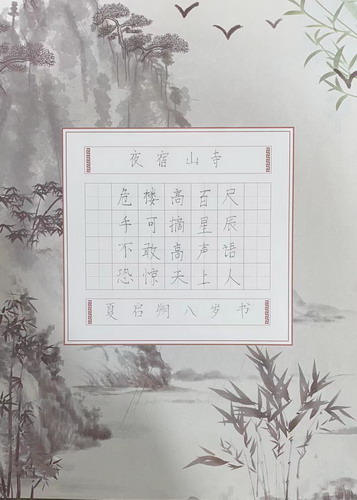 夜宿山寺
危楼高百尺
手可摘星辰
不敢高声语
恐惊天上人
夏启炯八岁书